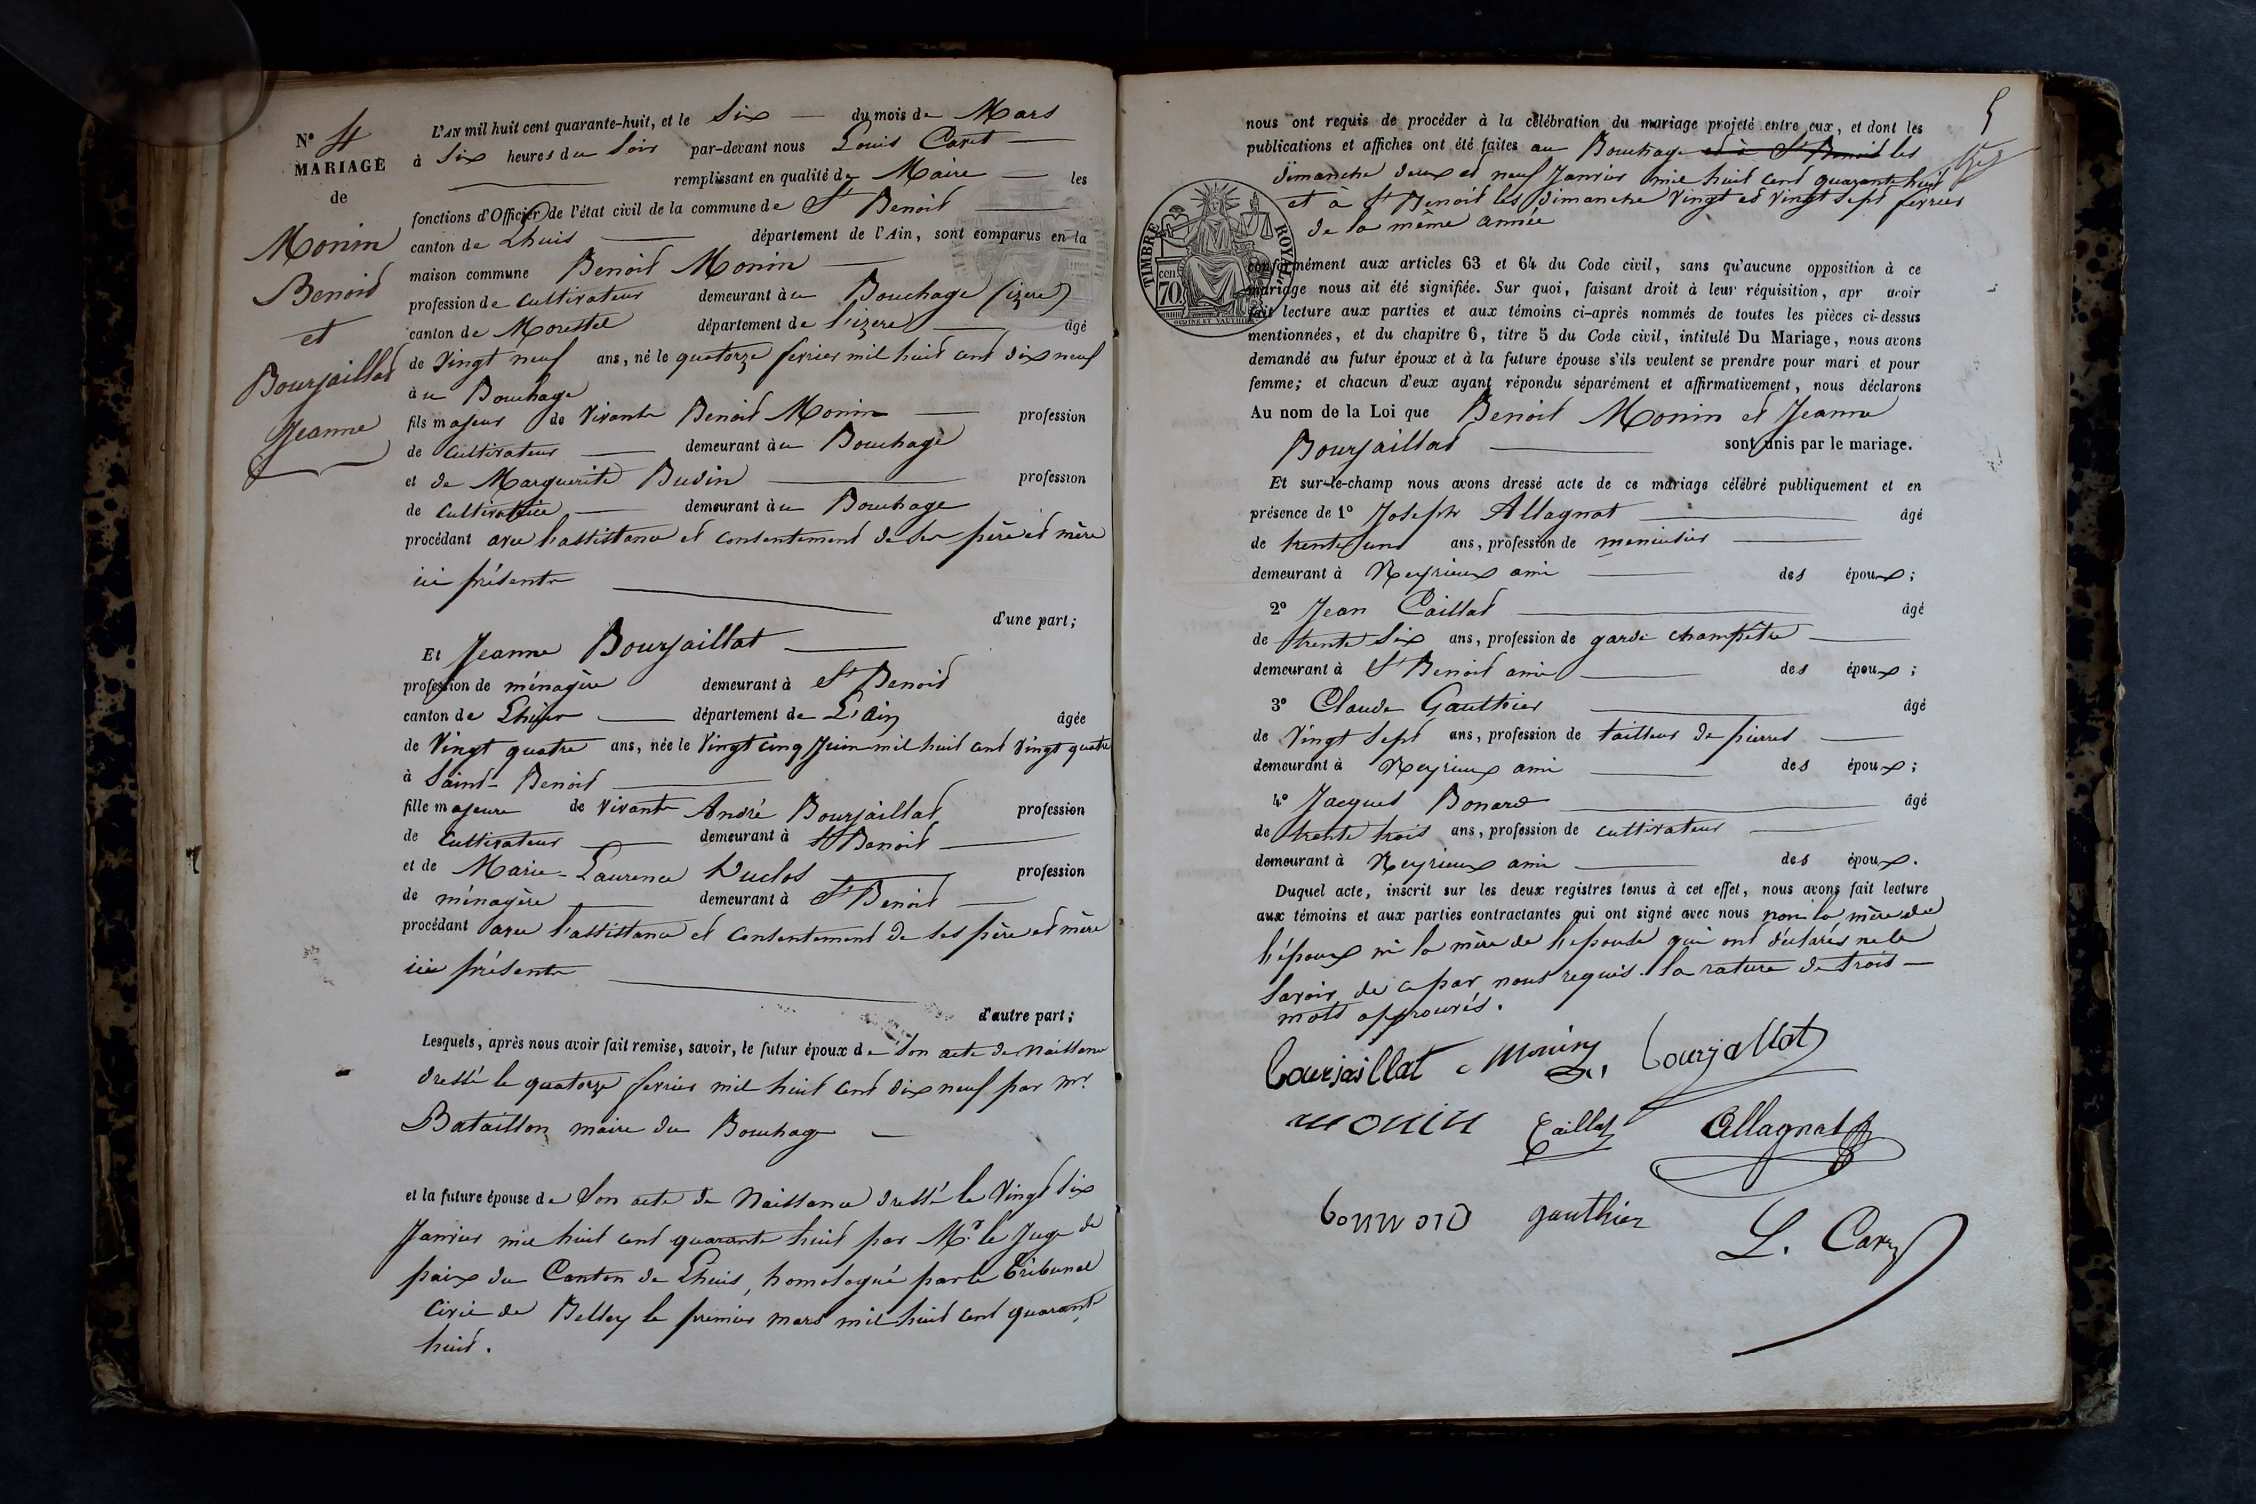 N° 4
MARIAGE
de
Monin
Benoid
et
Bourjaillad
Jeanne
L'AN mil huit cent quarante-huit, et le Six du mois de Mars
à Six heures du Soir par-devant nous Louis Caret
remplissant en qualité de Maire les
fonctions d'Officier de l'état civil de la commune de St Benoit
canton de Lhuis département de l'Ain, sont comparus en la
maison commune Benoit Monin
profession de cultivateur demeurant à u Bouchage (izere)
canton de Morestel département de l'izere âgé
de Vingt neuf ans, né le quatorze fevrier mil huit cent dix neuf
à u Bouchage
fils majeur de Vivants Benoit Monin profession
de Cultivateur demeurant à u Bouchage
et de Marguerite Budin profession
de Cultivatrice demeurant à u Bouchage
procédant avec l'assistance et consentement de ses père et mère
ici présents
d'une part;
Et Jeanne Bourjaillat
profession de ménagère demeurant à St Benoit
canton de Lhuis département de L'ain âgée
de Vingt quatre ans, née le Vingt cinq Juin mil huit cent Vingt quatre
à Saint-Benoit
fille majeure de Vivants André Bourjaillat profession
de Cultivateur demeurant à St Benoit
et de Marie-Laurence Duclos profession
de ménagère demeurant à St Benoit
procédant avec l'assistance et consentement de ses père et mère
ici présents
d'autre part;
Lesquels, après nous avoir fait remise, savoir, le futur époux de Son acte de Naissance
dressé le quatorze fevrier mil huit cent dix neuf par mr
Bataillon maire du Bouchage
et la future épouse de Son acte de Naissance dressé le Vingt Six
Janvier mil huit cent quarante huit par Mr. le Juge de
paix du Canton de Lhuis, homologué par le Tribunal
Civil de Belley le premier mars mil huit cent quarante
huit.
5
nous ont requis de procéder à la célébration du mariage projeté entre eux, et dont les
publications et affiches ont été faites au Bouchage et à St Benoit les
dimanche deux et neuf Janvier mil huit cent quarante huit
et à St Benoit les Dimanche Vingt et Vingt Sept fevrier
de la même année
TIMBRE ROYAL
cen. 70
conformément aux articles 63 et 64 du Code civil, sans qu'aucune opposition à ce
mariage nous ait été signifiée. Sur quoi, faisant droit à leur réquisition, apr avoir
fait lecture aux parties et aux témoins ci-après nommés de toutes les pièces ci-dessus
mentionnées, et du chapitre 6, titre 5 du Code civil, intitulé Du Mariage, nous avons
demandé au futur époux et à la future épouse s'ils veulent se prendre pour mari et pour
femme; et chacun d'eux ayant répondu séparément et affirmativement, nous déclarons
Au nom de la Loi que Benoit Monin et Jeanne
Bourjaillat sont unis par le mariage.
Et sur-le-champ nous avons dressé acte de ce mariage célébré publiquement et en
présence de 1° Joseph Allagnat âgé
de trente un ans, profession de menuisier
demeurant à Neyrieux ami des époux;
2° Jean Caillat âgé
de trente Six ans, profession de garde champêtre
demeurant à St Benoit ami des époux;
3° Claude Gauthier âgé
de Vingt Sept ans, profession de tailleur de pierres
demeurant à Neyrieux ami des époux;
4° Jacques Bonard âgé
de trente trois ans, profession de cultivateur
demeurant à Neyrieux ami des époux.
Duquel acte, inscrit sur les deux registres tenus à cet effet, nous avons fait lecture
aux témoins et aux parties contractantes qui ont signé avec nous non la mère de
l'époux ni la mère de l'epouse qui ont déclarés ne le
Savoir de ce par nous requis. la rature de trois
mots approuvés.
bourjaillat Monin bourjallat
monin Caillat Allagnat
bonnard gauthier L. Caret